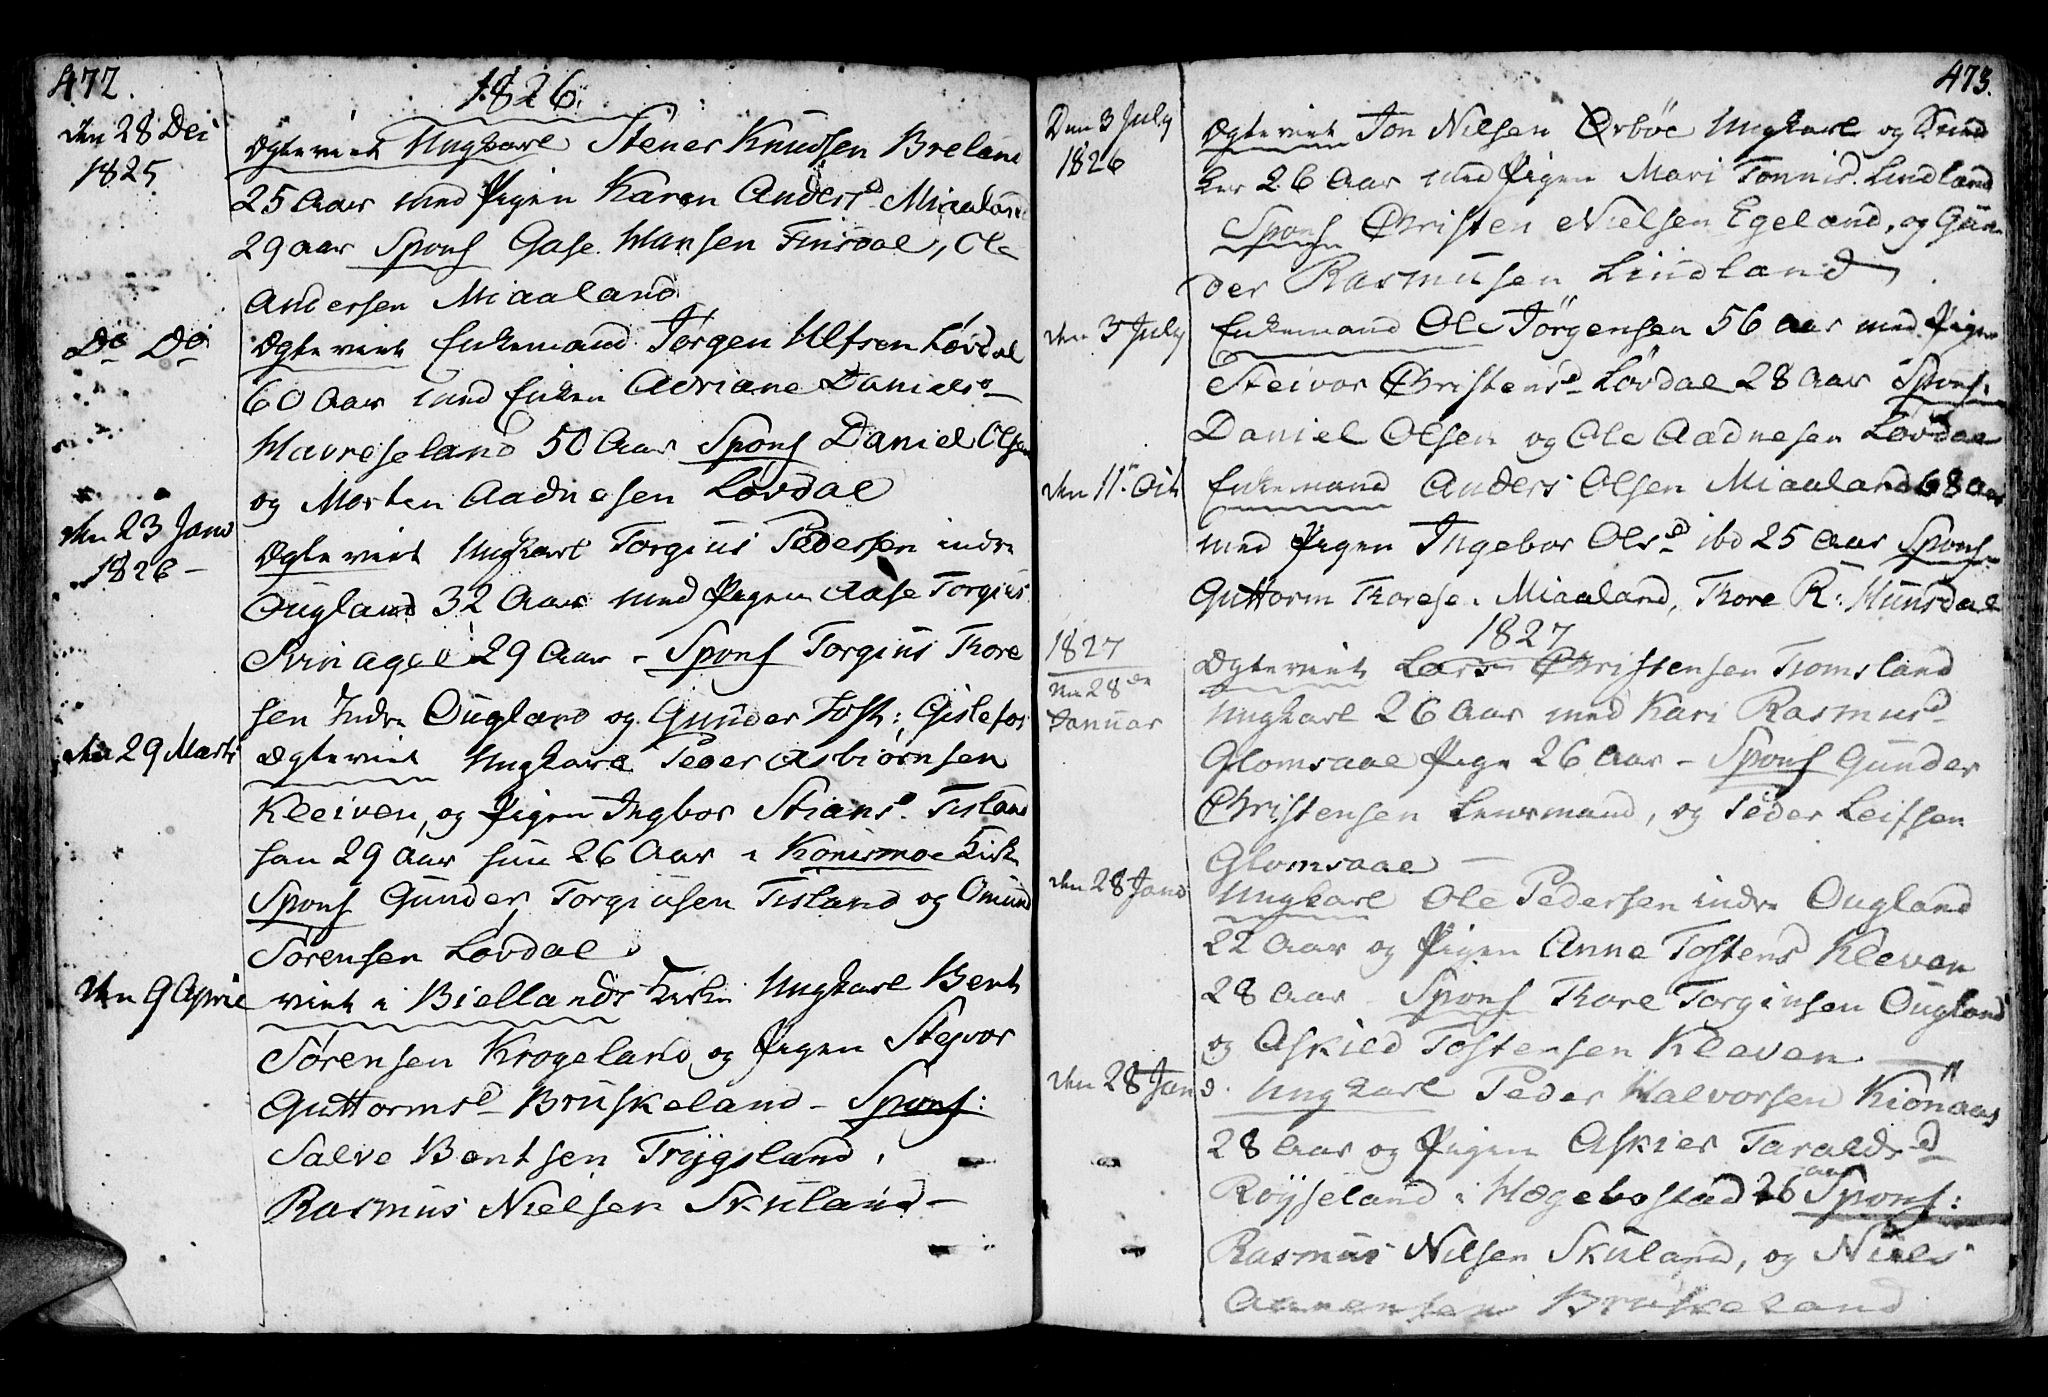 472.
1826.
den 28 Dec
1825
Ægteviet Ungkarl Stener Knudsen Breland
25 Aar med Pigen Karen Andersd Miaaland
29 aar Spons Gase Hansen Finsdal, Ole
Andersen Miaaland
Do Do
Ægteviet Enkemand Jørgen Ulfsen Løvdal
60 Aar med Enken Adriane Danielsd
Havreseland 50 Aar Spons Daniel Olsen
og Morten Aadnesen Løvdal
den 23 Janv
1826 –
Ægteviet Ungkarl Torgius Pedersen indre
Ougland 32 Aar med Pigen Aase Torgius
29 Aar – Spons Torgius Thore
sen Indre Ougland og Gunder Tosth: Gislefos
den 29 Marti
Ægteviet Ungkarl Peder Asbiørnsen
Kleiven, og Pigen Ingbor Stiansd. Tisland
han 29 Aar hun 26 Aar i Konismoe Kirke
Spons Gunder Torgiusen Tisland og Omund
Sørensen Løvdal.
den 9 April
viet i Biellands Kirke Ungkarl Bent
Sørensen Krogeland og Pigen Stejvor
Guttormsd Bruskeland – Spons:
Salve Bentsen Trÿgsland,
Rasmus Nielsen Skuland –
473.
Den 3 July
1826
Ægteviet Jon Nilsen Ørbøe Ungkarl og Snid
ker 26 Aar med Pigen Mari Tønnisd. Lindland
Spons Christen Nielsen Egeland, og Gun
der Rasmusen Lindland
den 3 July
Enkemand Ole Jørgensen 56 aar med Pigen
Steivor Christensd Løvdal 28 Aar Spons:
Daniel Olsen og Ole Aadnesen Løvdal
den 11te Oct
Enkemand Anders Olsen Miaaland 68 Aar
med Pigen Ingebor Olsd ibd 25 Aar Spons
Guttorm Thorese. Miaaland, Thore R: Hunsdal
1827
1827
den 28de
Januar
Ægteviet Lars Christensen Tromsland
Ungkarl 26 Aar med Kari Rasmusd
Glomsaae Pige 26 Aar – Spons Gunder
Christensen Lensmand, og Peder Leifsen
Glomsaae –
den 28 Janv
Ungkarl Ole Pedersen indre Ougland
22 Aar og Pigen Anne Tostensd Kleven
28 Aar Spons Thore Torginsen Ougland
og Askild Tostensen Kleven
den 28 Jan
Ungkarl Peder Halvorsen Kiönaas
28 Aar og Pigen Askier Taraldsd
Röÿseland i Hægebostad 26 aar Spons:
Rasmus Nilsen Skuland, og Niels
Bruskeland